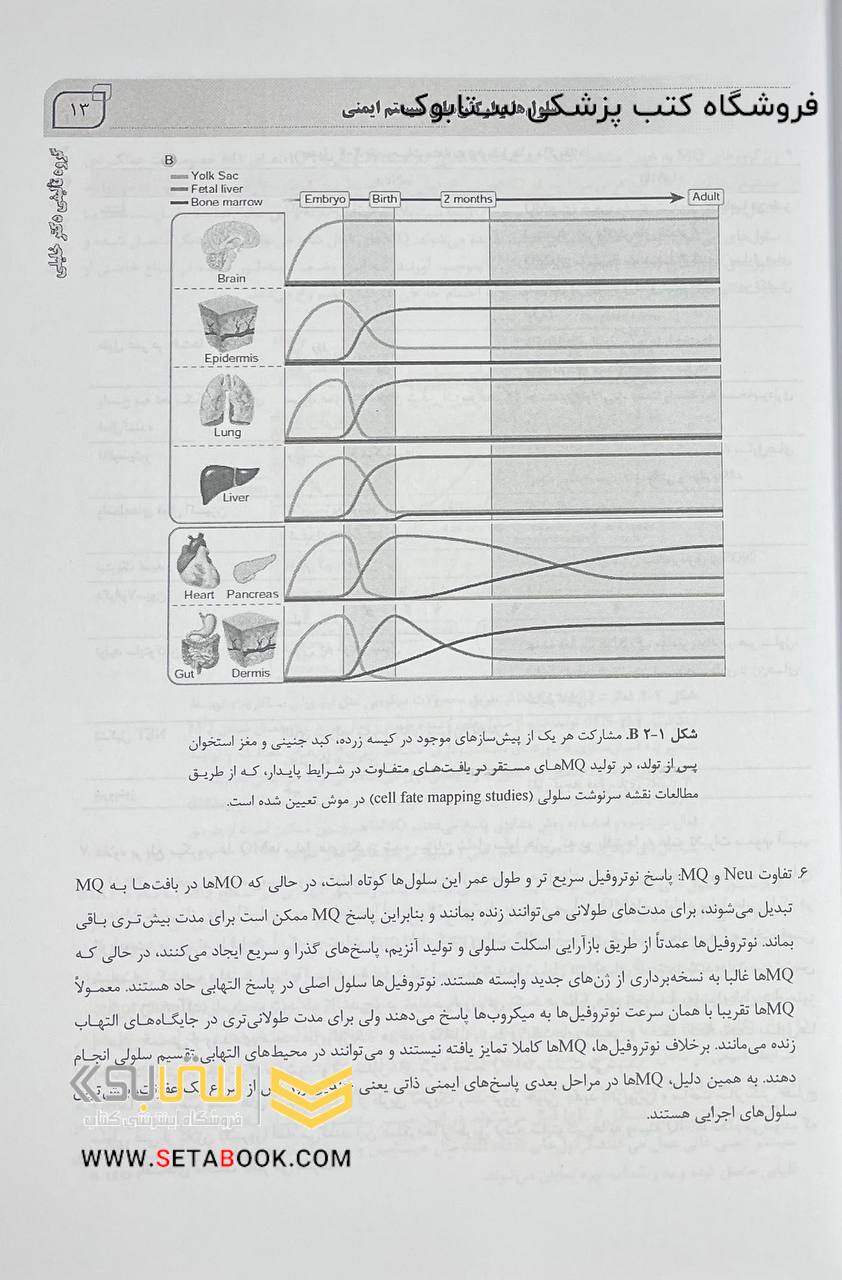 فروشگاه کتب پزشکی ستابوک
سیستم ایمنی
۱۳
گروه تالیفی دکتر خلیلی
B
Yolk Sac
Fetal liver
Bone marrow
Embryo Birth 2 months Adult
Brain
Epidermis
Lung
Liver
Heart Pancreas
Gut Dermis
شکل ۱-۲ B. مشارکت هر یک از پیش‌سازهای موجود در کیسه زرده، کبد جنینی و مغز استخوان
پس از تولد، در تولید MQهای مستقر در بافت‌های متفاوت در شرایط پایدار، که از طریق
مطالعات نقشه سرنوشت سلولی (cell fate mapping studies) در موش تعیین شده است.
۶. تفاوت Neu و MQ: پاسخ نوتروفیل سریع تر و طول عمر این سلول‌ها کوتاه است، در حالی که MOها در بافت‌ها به MQ
تبدیل می‌شوند، برای مدت‌های طولانی می‌توانند زنده بمانند و بنابراین پاسخ MQ ممکن است برای مدت بیش‌تری باقی
بماند. نوتروفیل‌ها عمدتاً از طریق بازآرایی اسکلت سلولی و تولید آنزیم، پاسخ‌های گذرا و سریع ایجاد می‌کنند، در حالی که
MQها غالبا به نسخه‌برداری از ژن‌های جدید وابسته هستند. نوتروفیل‌ها سلول اصلی در پاسخ التهابی حاد هستند. معمولاً
MQها تقریبا با همان سرعت نوتروفیل‌ها به میکروب‌ها پاسخ می‌دهند ولی برای مدت طولانی‌تری در جایگاه‌های التهاب
زنده می‌مانند. برخلاف نوتروفیل‌ها، MQها کاملا تمایز یافته نیستند و می‌توانند در محیط‌های التهابی تقسیم سلولی انجام
دهند. به همین دلیل، MQها در مراحل بعدی پاسخ‌های ایمنی ذاتی یعنی از
سلول‌های اجرایی هستند.
ستابوک
فروشگاه اینترنتی کتاب
WWW.SETABOOK.COM